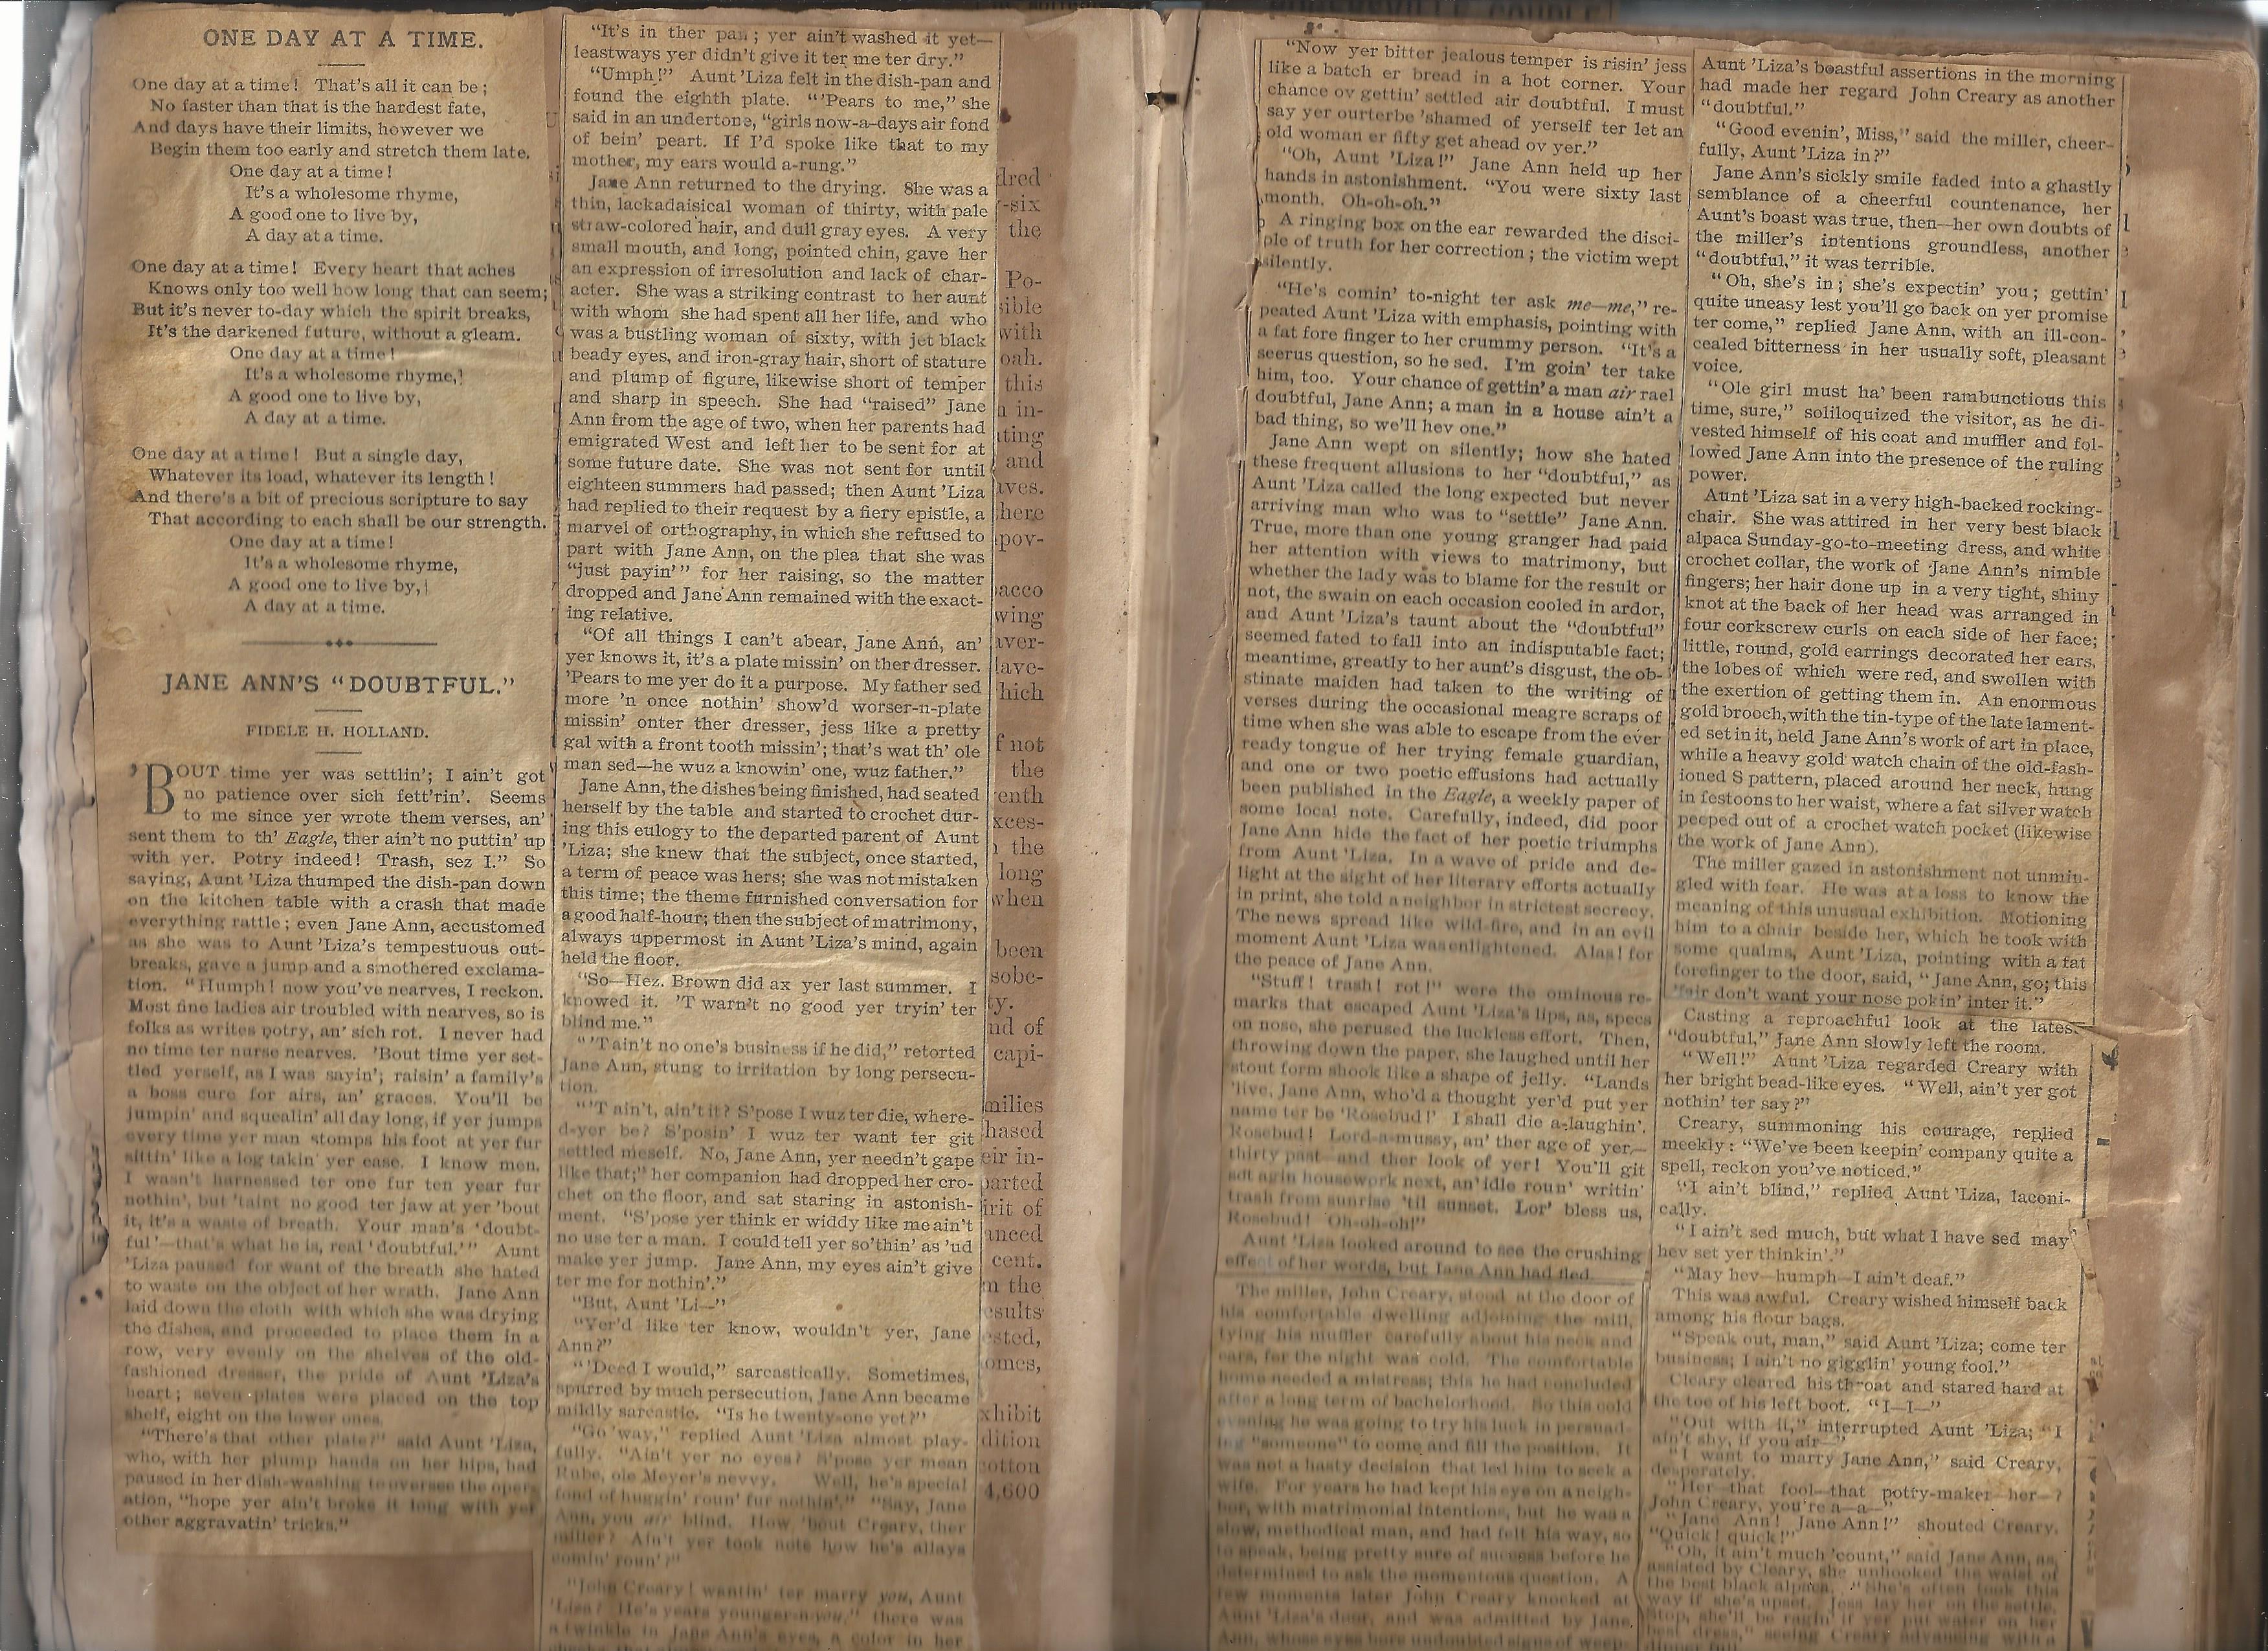 ONE DAY AT A TIME.
One day at a time! That's all it can be;
No faster than that is the hardest fate,
And days have their limits, however we
Begin them too early and stretch them late.
One day at a time!
It's a wholesome rhyme,
A good one to live by,
A day at a time.
One day at a time! Every heart that aches
Knows only too well how long that can seem;
But it's never to-day which the spirit breaks,
It's the darkened future, without a gleam.
One day at a time!
It's a wholesome rhyme,
A good one to live by,
A day at a time.
One day at a time! But a single day,
Whatever its load, whatever its length!
And there's a bit of precious scripture to say
That according to each shall be our strength.
One day at a time!
It's a wholesome rhyme,
A good one to live by,
A day at a time.
JANE ANN'S "DOUBTFUL."
FIDELE H. HOLLAND.
'BOUT time yer was settlin'; I ain't got
no patience over sich fett'rin'. Seems
to me since yer wrote them verses, an'
sent them to th' Eagle, ther ain't no puttin' up
with yer. Potry indeed! Trash, sez I." So
saying, Aunt 'Liza thumped the dish-pan down
on the kitchen table with a crash that made
everything rattle; even Jane Ann, accustomed
as she was to Aunt 'Liza's tempestuous out-
breaks, gave a jump and a smothered exclama-
tion. "Humph! now you've nearves, I reckon.
Most fine ladies air troubled with nearves, so is
folks as writes potry, an' sich rot. I never had
no time ter nurse nearves. 'Bout time yer set-
tled yerself, as I was sayin'; raisin' a family's
a boss cure for airs, an' graces. You'll be
jumpin' and squealin' all day long, if yer jumps
every time yer man stomps his foot at yer fur
sittin' like a log takin' yer ease. I know men,
I wasn't harnessed ter one fur ten year fur
nothin', but 'taint no good ter jaw at yer 'bout
it, it's a waste of breath. Your man's 'doubt-
ful'—that's what he is, real 'doubtful.'" Aunt
'Liza paused for want of the breath she hated
to waste on the object of her wrath. Jane Ann
laid down the cloth with which she was drying
the dishes, and proceeded to place them in a
row, very evenly on the shelves of the old-
fashioned dresser, the pride of Aunt 'Liza's
heart; seven plates were placed on the top
shelf, eight on the lower ones.
"There's that other plate?" said Aunt 'Liza,
who, with her plump hands on her hips, had
paused in her dish-washing to oversee the oper-
ation, "hope yer ain't broke it long with yer
other aggravatin' tricks."
"It's in ther pan; yer ain't washed it yet—
leastways yer didn't give it ter me ter dry."
"Umph!" Aunt 'Liza felt in the dish-pan and
found the eighth plate. "'Pears to me," she
said in an undertone, "girls now-a-days air fond
of bein' peart. If I'd spoke like that to my
mother, my ears would a-rung."
Jane Ann returned to the drying. She was a
thin, lackadaisical woman of thirty, with pale
straw-colored hair, and dull gray eyes. A very
small mouth, and long, pointed chin, gave her
an expression of irresolution and lack of char-
acter. She was a striking contrast to her aunt
with whom she had spent all her life, and who
was a bustling woman of sixty, with jet black
beady eyes, and iron-gray hair, short of stature
and plump of figure, likewise short of temper
and sharp in speech. She had "raised" Jane
Ann from the age of two, when her parents had
emigrated West and left her to be sent for at
some future date. She was not sent for until
eighteen summers had passed; then Aunt 'Liza
had replied to their request by a fiery epistle, a
marvel of orthography, in which she refused to
part with Jane Ann, on the plea that she was
"just payin'" for her raising, so the matter
dropped and Jane Ann remained with the exact-
ing relative.
"Of all things I can't abear, Jane Ann, an'
yer knows it, it's a plate missin' on ther dresser.
'Pears to me yer do it a purpose. My father sed
more 'n once nothin' show'd worser-n-plate
missin' onter ther dresser, jess like a pretty
gal with a front tooth missin'; that's wat th' ole
man sed—he wuz a knowin' one, wuz father."
Jane Ann, the dishes being finished, had seated
herself by the table and started to crochet dur-
ing this eulogy to the departed parent of Aunt
'Liza; she knew that the subject, once started,
a term of peace was hers; she was not mistaken
this time; the theme furnished conversation for
a good half-hour; then the subject of matrimony,
always uppermost in Aunt 'Liza's mind, again
held the floor.
"So—Hez. Brown did ax yer last summer. I
knowed it. 'T warn't no good yer tryin' ter
blind me."
"'Tain't no one's business if he did," retorted
Jane Ann, stung to irritation by long persecu-
tion.
"'T ain't, ain't it? S'pose I wuz ter die, where-
d-yer be? S'posin' I wuz ter want ter git
settled meself. No, Jane Ann, yer needn't gape
like that;" her companion had dropped her cro-
chet on the floor, and sat staring in astonish-
ment. "S'pose yer think er widdy like me ain't
no use ter a man. I could tell yer so'thin' as 'ud
make yer jump. Jane Ann, my eyes ain't give
ter me for nothin'."
"But, Aunt 'Li—"
"Yer'd like ter know, wouldn't yer, Jane
Ann?"
"'Deed I would," sarcastically. Sometimes,
spurred by much persecution, Jane Ann became
mildly sarcastic. "Is he twenty-one yet?"
"Go 'way," replied Aunt 'Liza almost play-
fully. "Ain't yer no eyes? S'pose yer mean
Rube, ole Meyer's nevvy. Well, he's special
fond of huggin' roun' fur nothin'." "Say, Jane
Ann, you air blind. How 'bout Creary, ther
miller? Ain't yer took note how he's allays
comin' roun'?"
"John Creary! wantin' ter marry you, Aunt
'Liza? He's years younger-n-you," there was
a twinkle in Jane Ann's eyes, a color in her
dred
-six
the
Po-
sible
with
oah.
this
n in-
ting
and
aves.
here
pov-
acco
wing
aver-
lave-
hich
f not
the
enth
xces-
n the
long
when
been
sobe-
ty.
nd of
capi-
milies
hased
eir in-
parted
irit of
anced
cent.
n the
esults
ested,
omes,
xhibit
dition
cotton
4,600
"Now yer bitter jealous temper is risin' jess
like a batch er bread in a hot corner. Your
chance ov gettin' settled air doubtful. I must
say yer ourterbe 'shamed of yerself ter let an
old woman er fifty get ahead ov yer."
"Oh, Aunt 'Liza!" Jane Ann held up her
hands in astonishment. "You were sixty last
month. Oh-oh-oh."
A ringing box on the ear rewarded the disci-
ple of truth for her correction; the victim wept
silently.
"He's comin' to-night ter ask me—me," re-
peated Aunt 'Liza with emphasis, pointing with
a fat fore finger to her crummy person. "It's a
seerus question, so he sed. I'm goin' ter take
him, too. Your chance of gettin' a man air rael
doubtful, Jane Ann; a man in a house ain't a
bad thing, so we'll hev one."
Jane Ann wept on silently; how she hated
these frequent allusions to her "doubtful," as
Aunt 'Liza called the long expected but never
arriving man who was to "settle" Jane Ann.
True, more than one young granger had paid
her attention with views to matrimony, but
whether the lady was to blame for the result or
not, the swain on each occasion cooled in ardor,
and Aunt 'Liza's taunt about the "doubtful"
seemed fated to fall into an indisputable fact;
meantime, greatly to her aunt's disgust, the ob-
stinate maiden had taken to the writing of
verses during the occasional meagre scraps of
time when she was able to escape from the ever
ready tongue of her trying female guardian,
and one or two poetic effusions had actually
been published in the Eagle, a weekly paper of
some local note. Carefully, indeed, did poor
Jane Ann hide the fact of her poetic triumphs
from Aunt 'Liza. In a wave of pride and de-
light at the sight of her literary efforts actually
in print, she told a neighbor in strictest secrecy.
The news spread like wild-fire, and in an evil
moment Aunt 'Liza was enlightened. Alas! for
the peace of Jane Ann.
"Stuff! trash! rot!" were the ominous re-
marks that escaped Aunt 'Liza's lips, as, specs
on nose, she perused the luckless effort. Then,
throwing down the paper, she laughed until her
stout form shook like a shape of jelly. "Lands
'live, Jane Ann, who'd a thought yer'd put yer
name ter be 'Rosebud!' I shall die a-laughin'.
Rosebud! Lord-a-mussy, an' ther age of yer—
thirty past—and ther look of yer! You'll git
sot agin housework next, an' idle roun' writin'
trash from sunrise 'til sunset. Lor' bless us,
Rosebud! Oh-oh-oh!"
Aunt 'Liza looked around to see the crushing
effect of her words, but Jane Ann had fled.
The miller, John Creary, stood at the door of
his comfortable dwelling adjoining the mill,
tying his muffler carefully about his neck and
ears, for the night was cold. The comfortable
home needed a mistress; this he had concluded
after a long term of bachelorhood. So this cold
evening he was going to try his luck in persuad-
ing "someone" to come and fill the position. It
was not a hasty decision that led him to seek a
wife. For years he had kept his eye on a neigh-
bor, with matrimonial intentions, but he was a
slow, methodical man, and had felt his way, so
to speak, being pretty sure of success before he
determined to ask the momentous question. A
few moments later John Creary knocked at
Aunt 'Liza's door, and was admitted by Jane
Ann, whose eyes bore undoubted signs of weep-
Aunt 'Liza's boastful assertions in the morning
had made her regard John Creary as another
"doubtful."
"Good evenin', Miss," said the miller, cheer-
fully, Aunt 'Liza in?"
Jane Ann's sickly smile faded into a ghastly
semblance of a cheerful countenance, her
Aunt's boast was true, then—her own doubts of
the miller's intentions groundless, another
"doubtful," it was terrible.
"Oh, she's in; she's expectin' you; gettin'
quite uneasy lest you'll go back on yer promise
ter come," replied Jane Ann, with an ill-con-
cealed bitterness in her usually soft, pleasant
voice.
"Ole girl must ha' been rambunctious this
time, sure," soliloquized the visitor, as he di-
vested himself of his coat and muffler and fol-
lowed Jane Ann into the presence of the ruling
power.
Aunt 'Liza sat in a very high-backed rocking-
chair. She was attired in her very best black
alpaca Sunday-go-to-meeting dress, and white
crochet collar, the work of Jane Ann's nimble
fingers; her hair done up in a very tight, shiny
knot at the back of her head was arranged in
four corkscrew curls on each side of her face;
little, round, gold earrings decorated her ears,
the lobes of which were red, and swollen with
the exertion of getting them in. An enormous
gold brooch, with the tin-type of the late lament-
ed set in it, held Jane Ann's work of art in place,
while a heavy gold watch chain of the old-fash-
ioned S pattern, placed around her neck, hung
in festoons to her waist, where a fat silver watch
peeped out of a crochet watch pocket (likewise
the work of Jane Ann).
The miller gazed in astonishment not unmin-
gled with fear. He was at a loss to know the
meaning of this unusual exhibition. Motioning
him to a chair beside her, which he took with
some qualms, Aunt 'Liza, pointing with a fat
forefinger to the door, said, "Jane Ann, go; this
'fair don't want your nose pokin' inter it."
Casting a reproachful look at the lates
"doubtful," Jane Ann slowly left the room.
"Well!" Aunt 'Liza regarded Creary with
her bright bead-like eyes. "Well, ain't yer got
nothin' ter say?"
Creary, summoning his courage, replied
meekly: "We've been keepin' company quite a
spell, reckon you've noticed."
"I ain't blind," replied Aunt 'Liza, laconi-
cally.
"I ain't sed much, but what I have sed may
hev set yer thinkin'."
"May hev—humph—I ain't deaf."
This was awful. Creary wished himself back
among his flour bags.
"Speak out, man," said Aunt 'Liza; come ter
business; I ain't no gigglin' young fool."
Cleary cleared his throat and stared hard at
the toe of his left boot. "I—I—"
"Out with it," interrupted Aunt 'Liza; "I
ain't shy, if you air—"
"I want to marry Jane Ann," said Creary,
desperately.
"Her—that fool—that potry-maker—her—?
John Creary, you're a—a—"
"Jane Ann! Jane Ann!" shouted Creary.
"Quick! quick!"
"Oh, it ain't much 'count," said Jane Ann, as,
assisted by Cleary, she unhooked the waist of
the best black alpaca. "She's often took this
way if she's upset. Jess lay her on the settle.
Stop, she'll be ragin' if yer put water on her
best dress," seeing Creary advancing with a